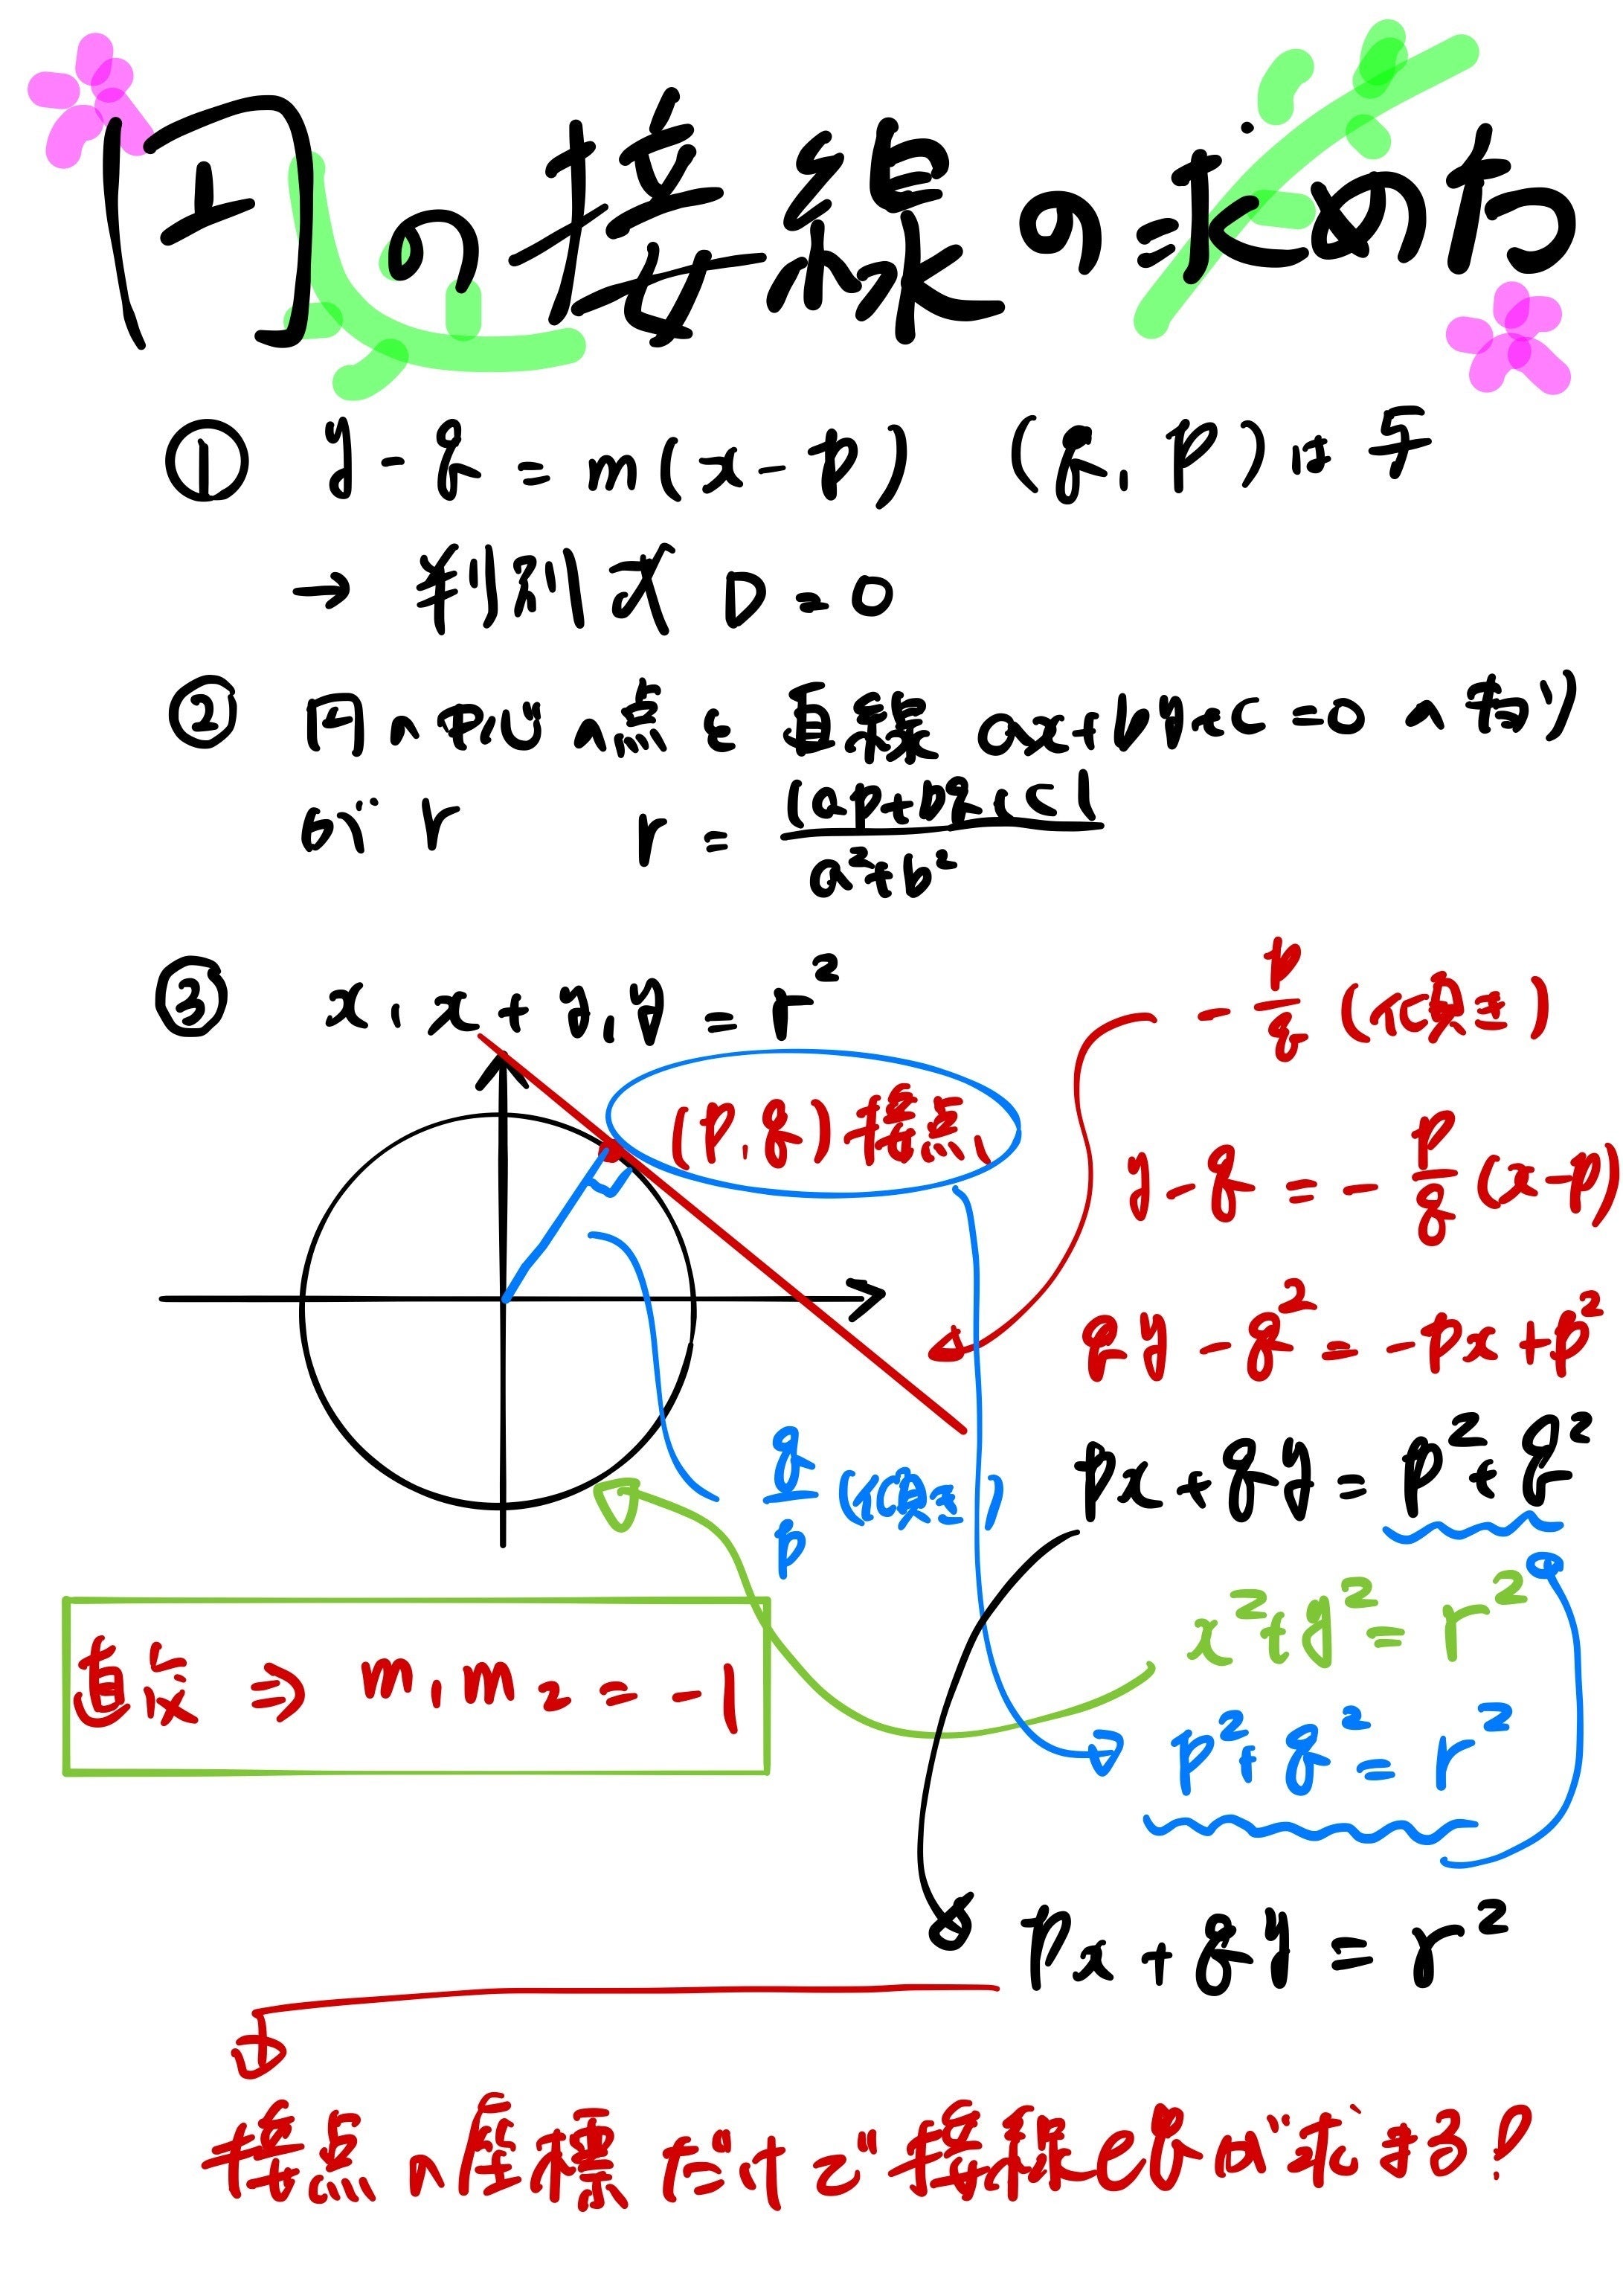 円の接線の求め方
① y-q=m(x-p) (q,p)は与
→ 判別式 D=0
② 円の中心の点と直線 ax+by+c=0の
が r r=|ap+bq+c|/a²+b²
③ x₁x+y₁y=r²
-p/q (傾き)
(p,q)接点
y-q=-p/q(x-p)
qy-q²=-px+p²
q/p (傾き)
px+qy=p²+q²
x²+y²=r²
直交⇒m₁m₂=-1
p²+q²=r²
px+qy=r²
接点の座標だけで接線が求まる!